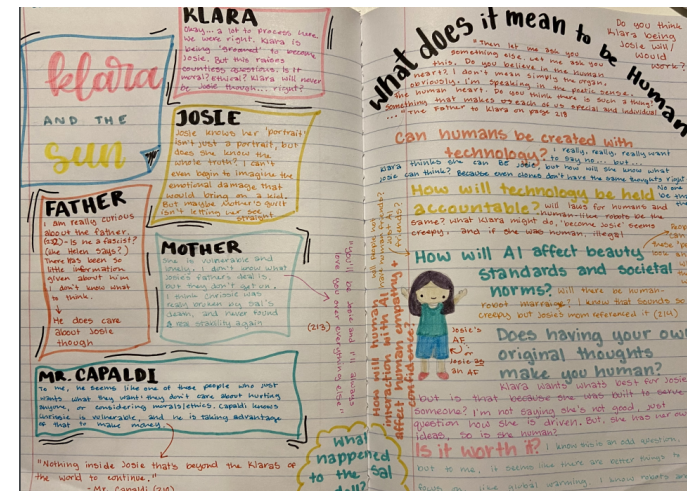 klara
AND THE
sun
KLARA
Okay... a lot to process here.
We were right. Klara is
being "groomed" to become
Josie. But this raises
countless questions. Is it
moral? Ethical? Klara will never
be Josie though... right?
JOSIE
Josie knows her 'portrait'
isn't just a portrait, but
does she know the
whole truth? I can't
even begin to imagine the
emotional damage that
would bring on a kid.
But maybe Mother's guilt
isn't letting her see
straight.
FATHER
I am really curious
about the father.
- Is he a fascist?
(like Helen says?)
There has been so
little information
given about him
I don't know what
to think.
He does care
about Josie
though
MOTHER
She is vulnerable and
lonely. I don't know what
Josie's father's deal is,
but they don't get on.
I think Chrissie was
really broken by Sal's
death, and never found
stability again
"you'll be Josie and I'll always
love you over everything else."
(213)
MR. CAPALDI
To me, he seems like one of those people who just
wants what they want they don't care about hurting
anyone, or considering morals/ethics. Capaldi knows
Chrissie is vulnerable, and he is taking advantage
of that to make money.
"Nothing inside Josie that's beyond the Klaras of
the world to continue."
- Mr. Capaldi (210)
What
happened
to the Sal
doll?
What does it mean to be Human
Do you think
Klara being
Josie will/
would
work?
"Then let me ask you
something else. Let me ask you
this. Do you believe in the human
heart? I don't mean simply the organ,
obviously. I'm speaking in the poetic sense.
The human heart. Do you think there is such a thing?
Something that makes each of us special and individual
..." - The Father to Klara on page 218
Can humans be created with
technology? I really, really, really want
to say no... but...
Klara thinks she can BE Josie, but how will she know what
Josie can think? Because even clones don't have the same thoughts right?
How will technology be held
accountable? Will laws for humans and
human-like robots be the
same? What Klara might do, 'become Josie' seems
creepy, and if she was human, illegal
How will AI affect beauty
standards and societal
norms? Will there be human-
robot marriage? I know that sounds so
creepy but Josie's mom referenced it (214)
How will human
interaction with AI
affect human empathy +
confidence?
Josie's
AF
Josie as
an AF
Does having your own
original thoughts
make you human?
Klara wants whats best for Josie
but is that because she was built to serve
someone? I'm not saying she's not good, just
question how she is driven. But, she has her own
ideas, so is she human?
Is it worth it? I know this is an odd question,
but to me, it seems like there are better things to